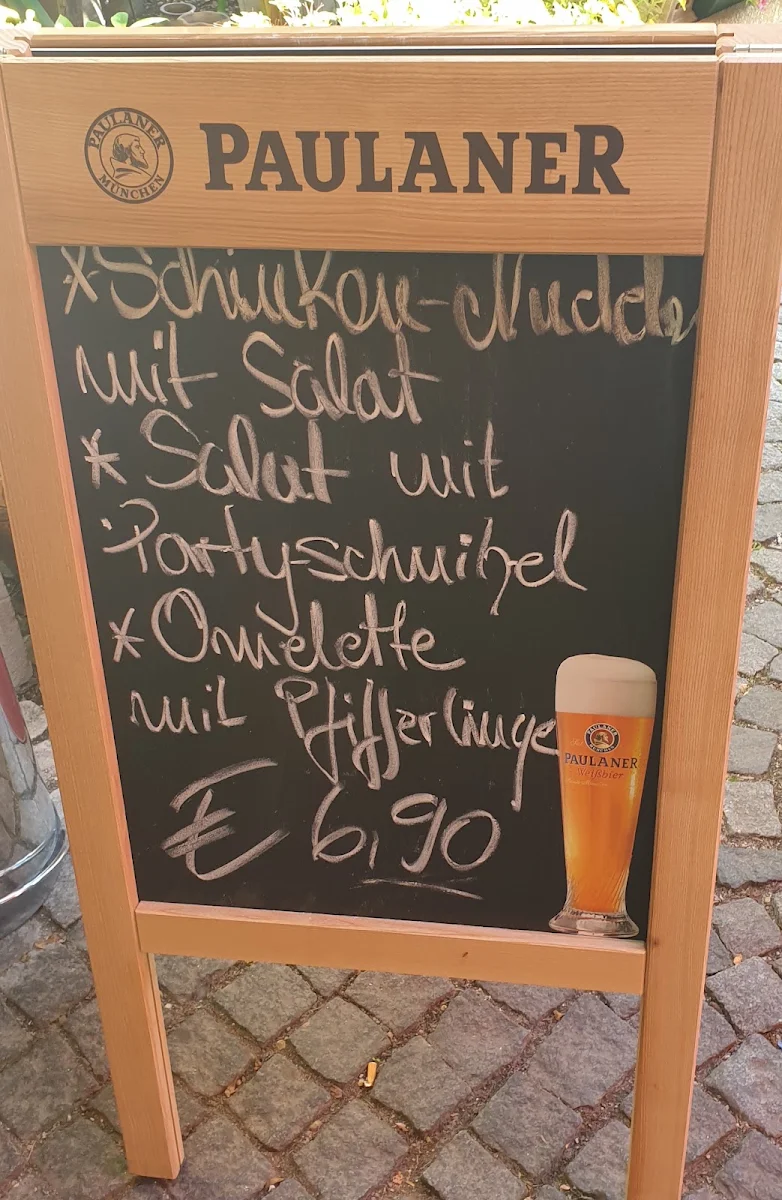 PAULANER
MÜNCHEN
PAULANER
*Schinken-Nudeln
mit Salat
* Salat mit
Partyschnitzel
* Omelette
mit Pfifferlinge
€ 6,90
PAULANER
MÜNCHEN
PAULANER
Weißbier